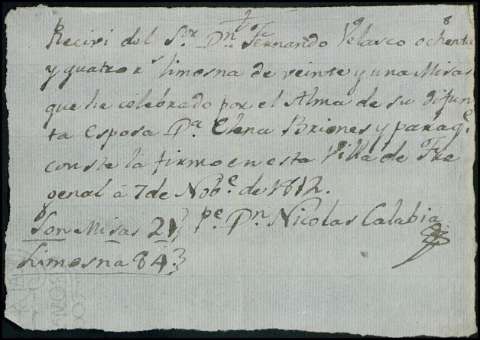 Recivi del S.r D.n Fernando Velasco ochenta
y quatro r.s limosna de veinte y una Misas
que he celebrado por el Alma de su difun
ta Esposa D.a Elena Briones y para q.e
conste la firmo en esta Villa de Fre
genal á 7 de Nob.e de 1812.
Son Misas 21 D.n Nicolas Calabia
Limosna 84